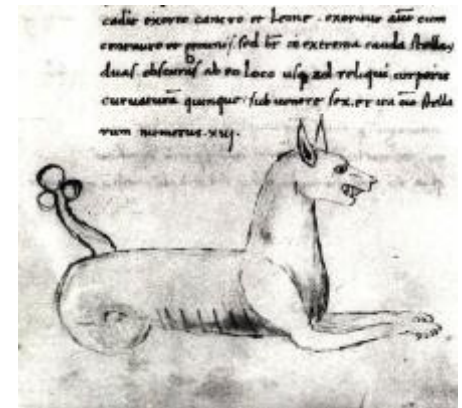 cadit exorto cancro et Leone. exoritur aut̄ cum
centauro et geminis. sed ht̄ in extrema cauda stellas
duas obscuras ab eo loco usq; ad reliqui corporis
curuaturā quinque. sub uentre sex. et ita stella
rum numerus. xiij.